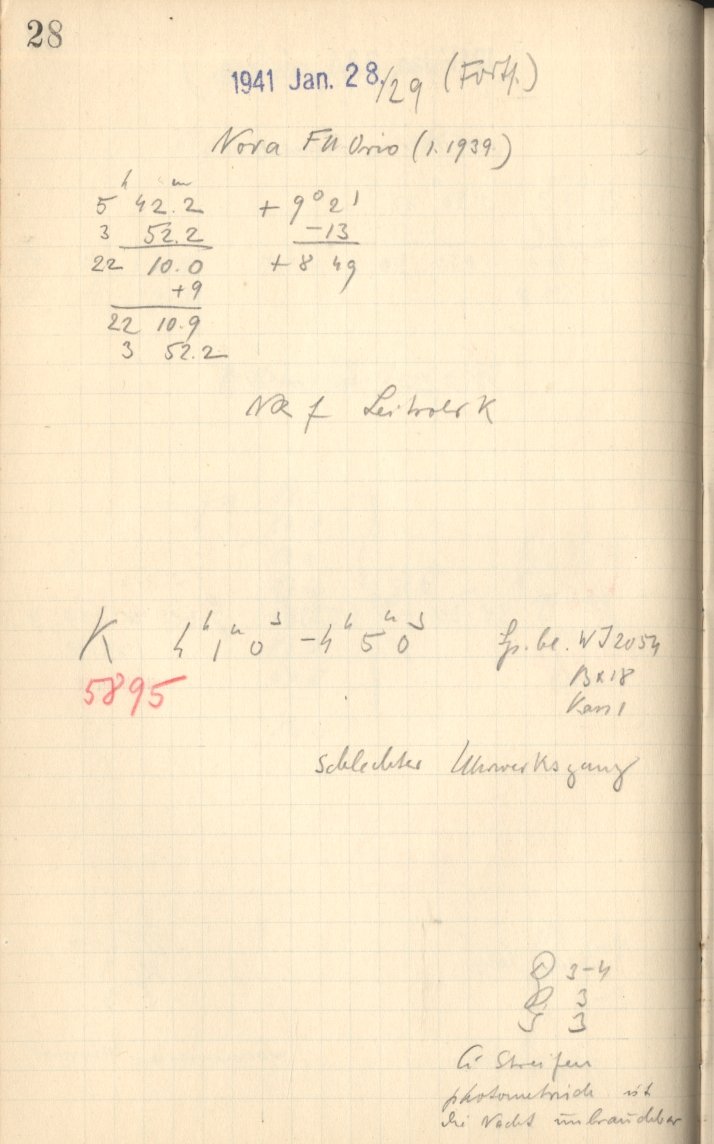 28
1941 Jan. 28./29 (Forts.)
Nova FU Orio (1.1939)
h m
5 42.2 + 9° 21'
3 52.2 -13
22 10.0 + 8 49
+9
22 10.9
3 52.2
f Leitrohr K
K 4h 1m 0s -4h 5m 0s Sp. bl. WJ 2054
5895 Bx18
Kass 1
schlechter Uhrwerksgang
3-4
3
3
Ci Streifen
photometrisch ist
die Nacht unbrauchbar